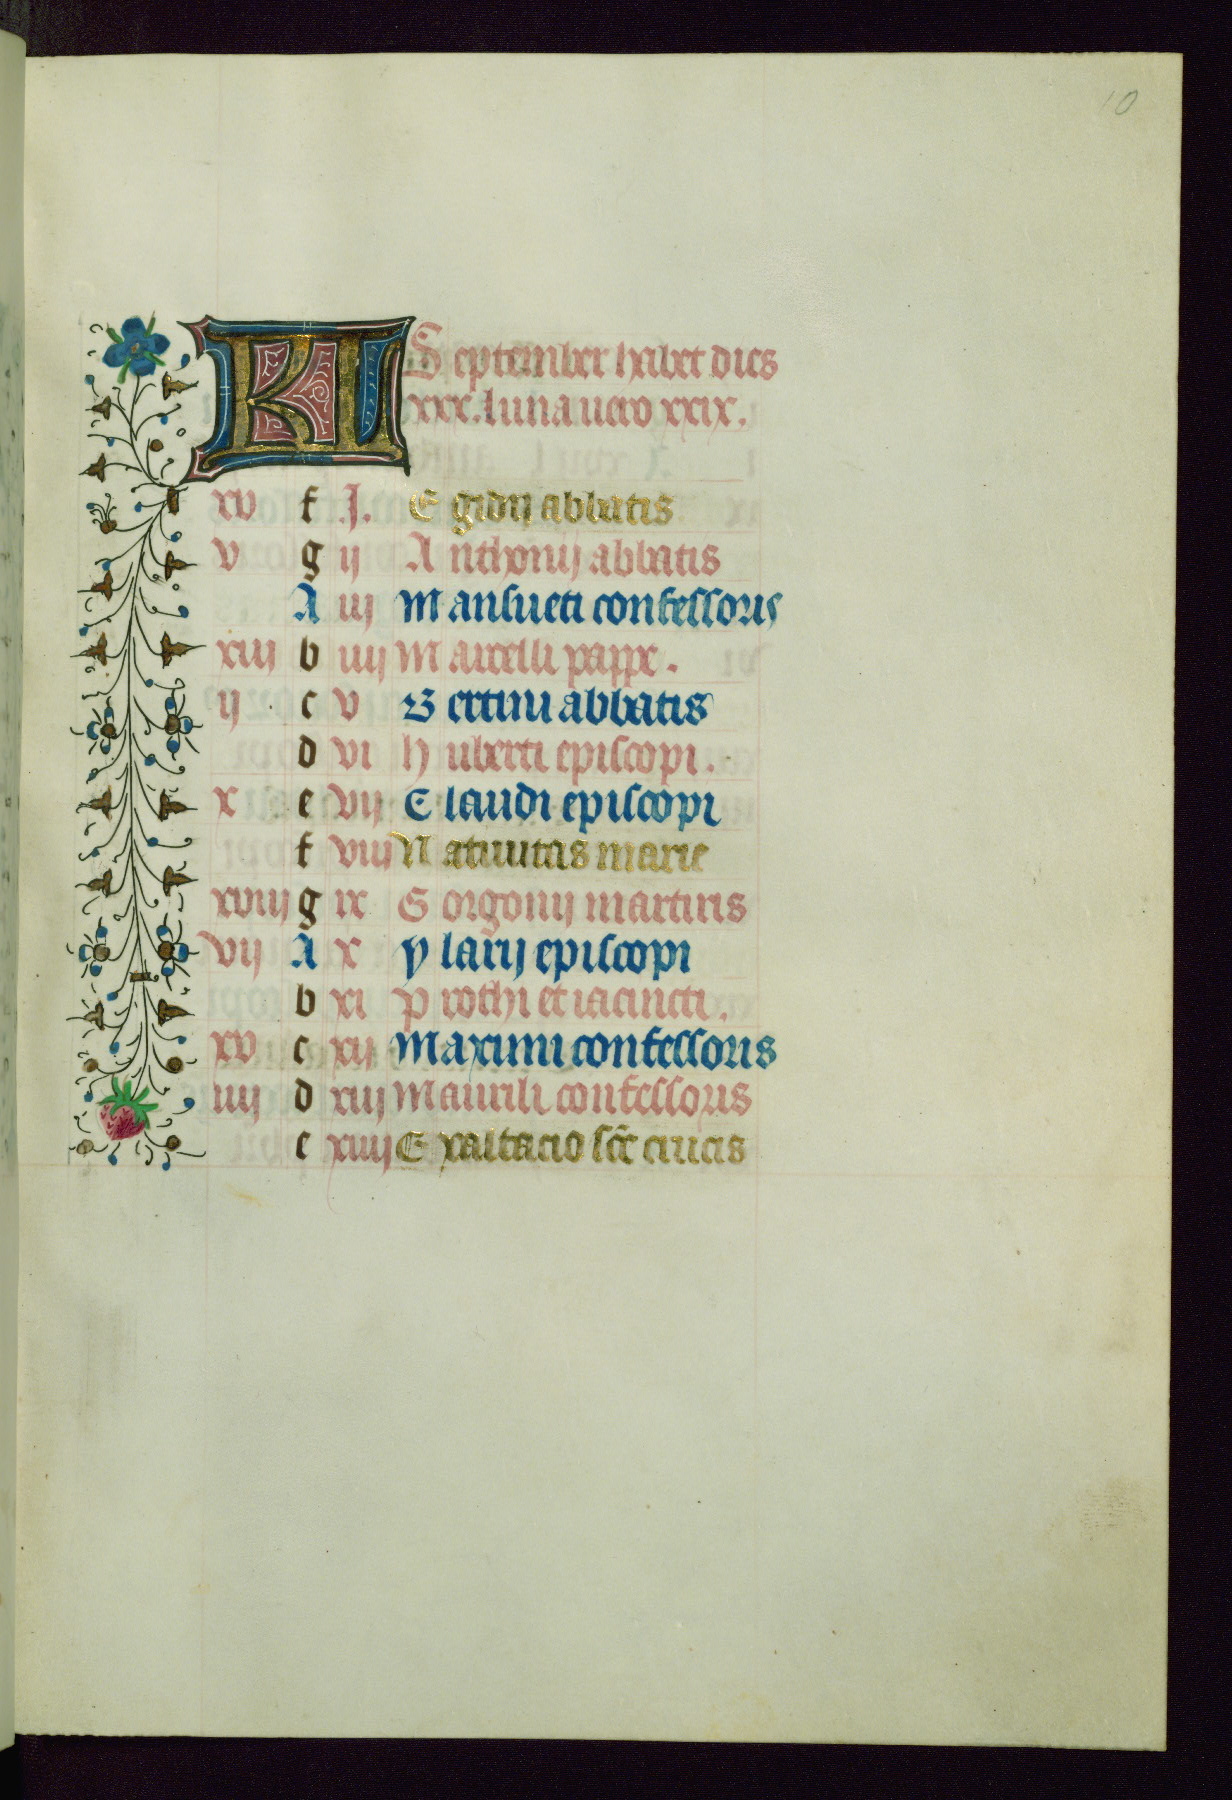 10
Kl September habet dies
xxx. luna uero xxix.
xv f J. Egidij abbatis
v g ij Anthonij abbatis
A iij Mansueti confessoris
xiij b iiij Marcelli pappe.
ij c v Bertini abbatis
d vi Huberti episcopi.
x e vij Claudi episcopi
f viij Natiuitas marie
xviij g ix Gorgonij martiris
vij A x Ylarij episcopi
b xi Prothi et iacincti.
xv c xij Maximi confessoris
iiij d xiij Maurili confessoris
e xiiij Exaltacio sce crucis